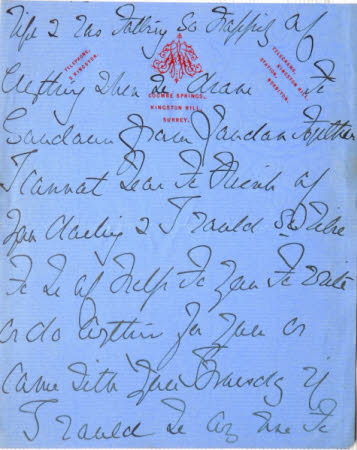 life & was talking so happily of
everything when we came to
TELEPHONE, 8, KINGSTON.
COOMBE SPRINGS,
KINGSTON HILL,
SURREY.
TELEGRAMS, KINGSTON HILL.
STATION,
Sandown from London together
I cannot bear to think of
you darling & I would so like
to be of help to you to write
or do anything for you or
come with you Thursday if
I could be any use to